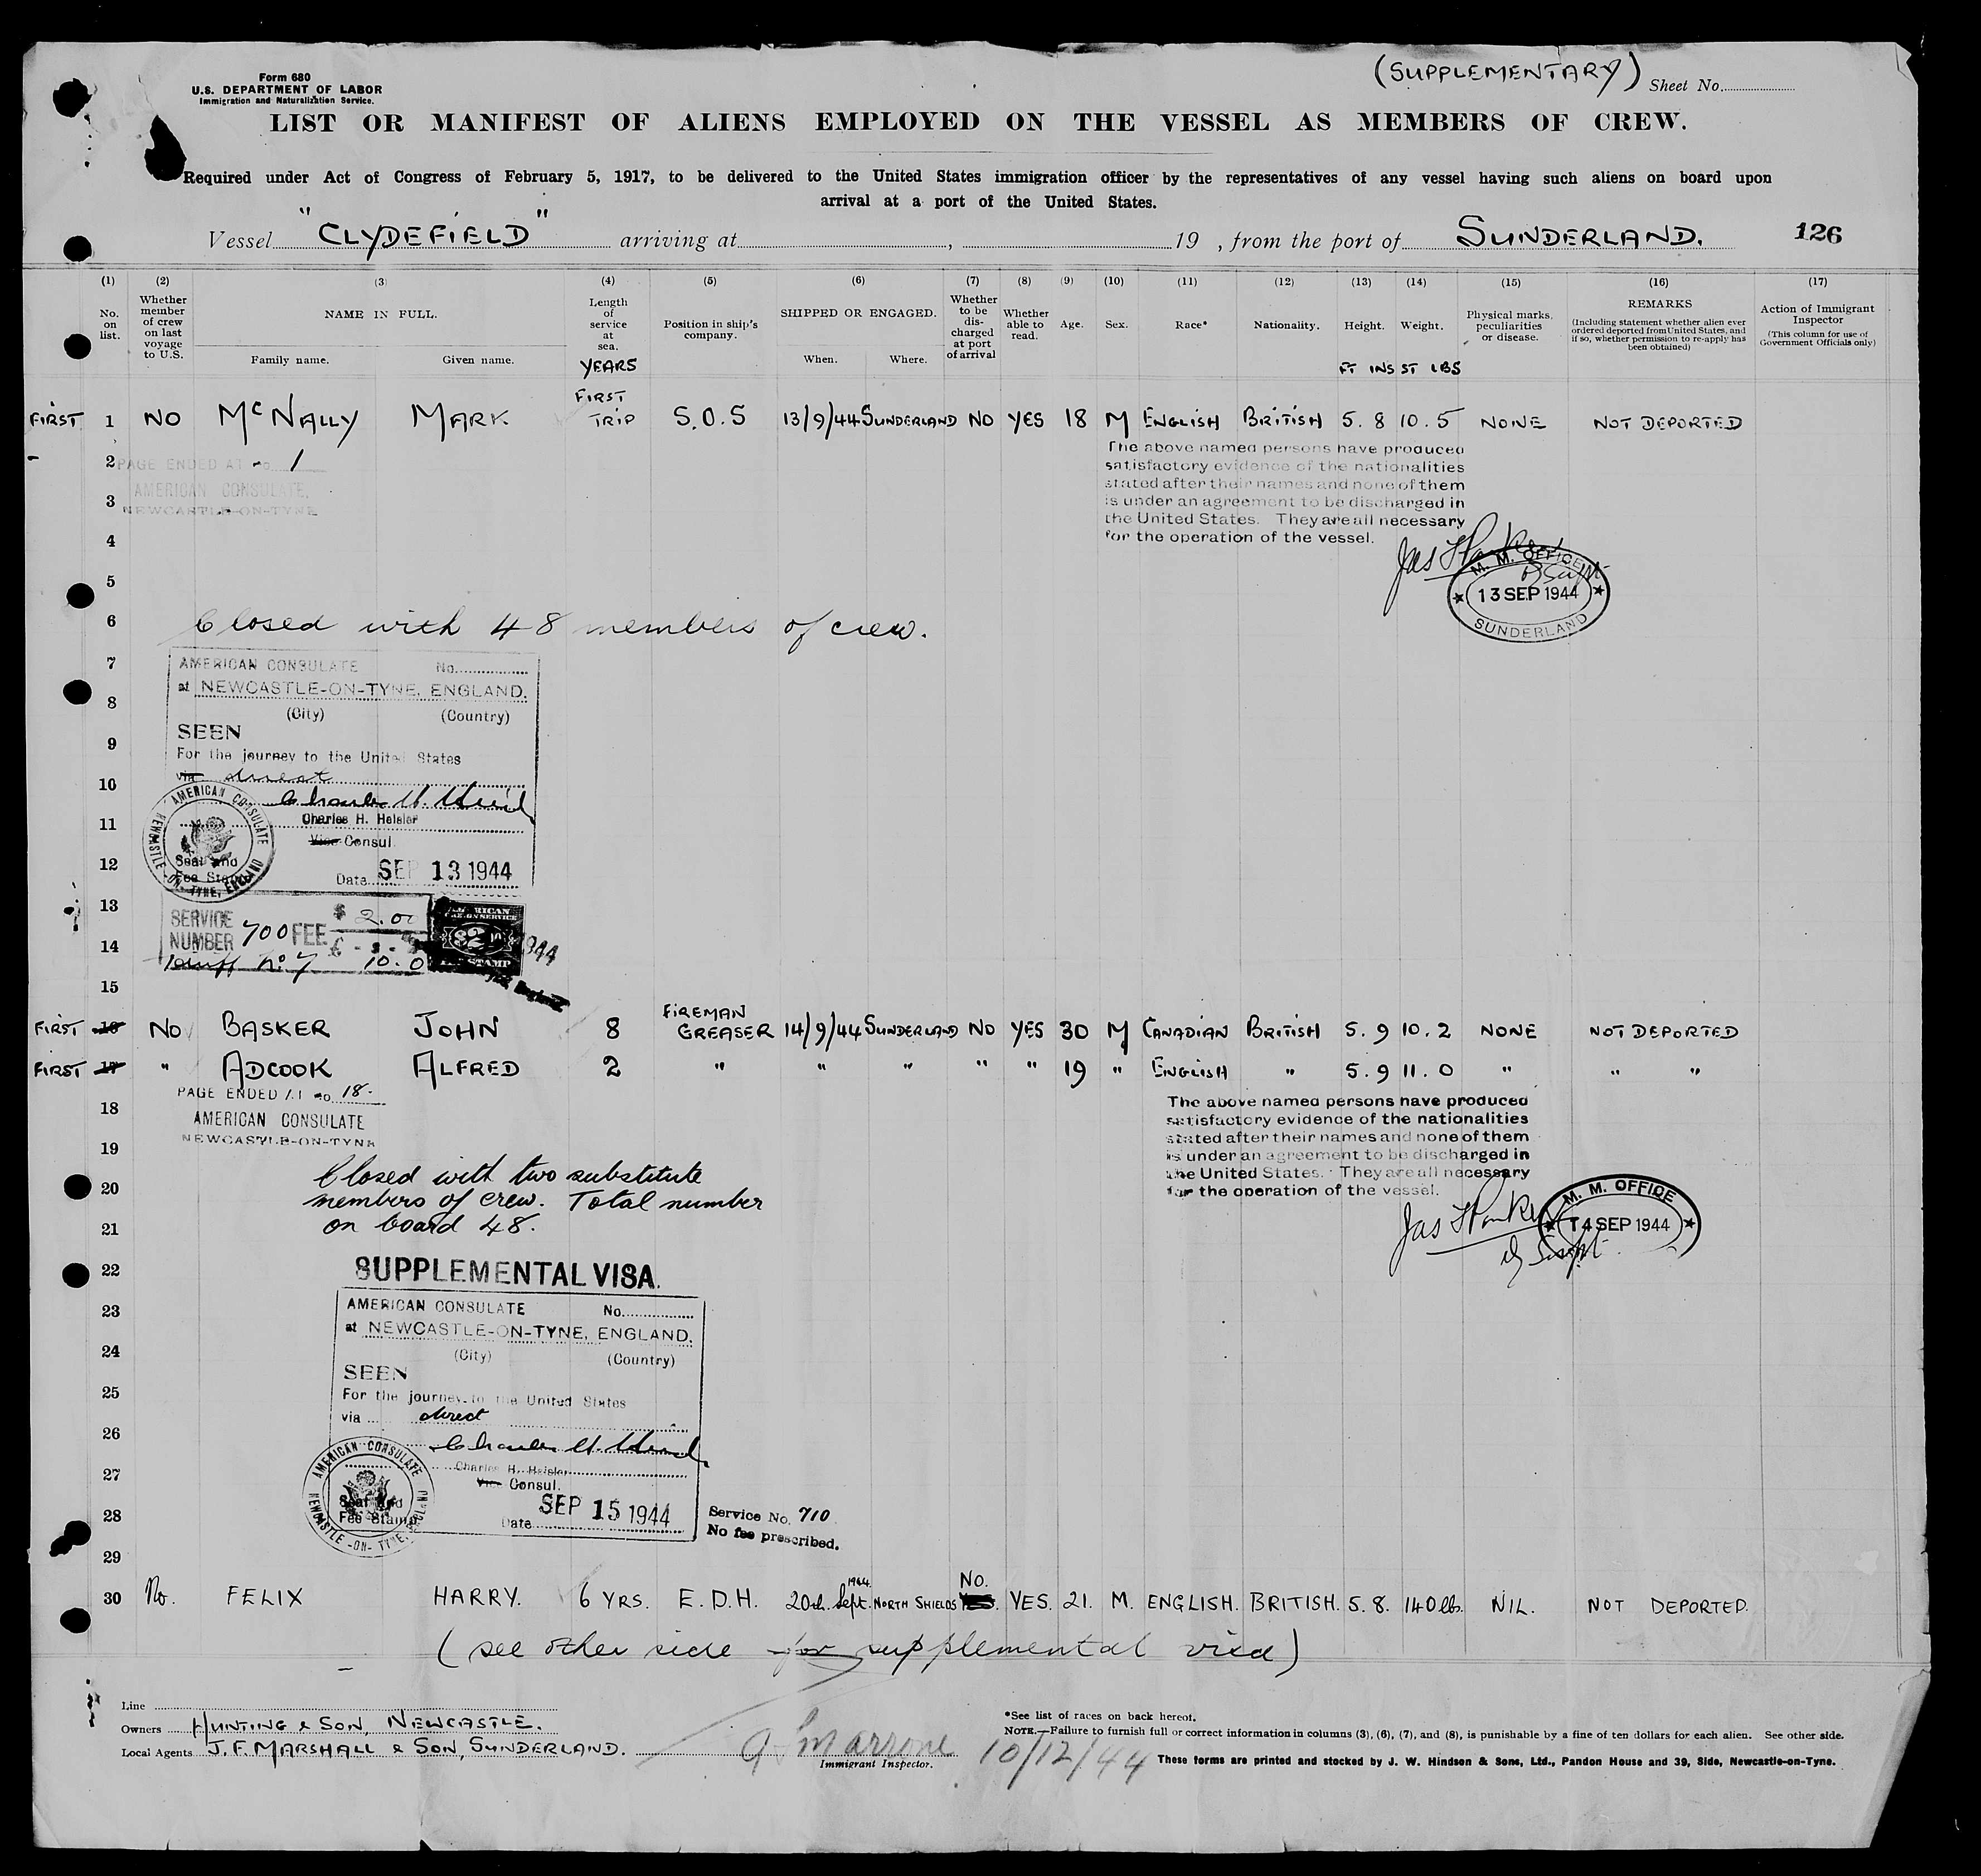 (SUPPLEMENTARY) Sheet No.
Form 680
U.S. DEPARTMENT OF LABOR
Immigration and Naturalization Service.
LIST OR MANIFEST OF ALIENS EMPLOYED ON THE VESSEL AS MEMBERS OF CREW.
Required under Act of Congress of February 5, 1917, to be delivered to the United States immigration officer by the representatives of any vessel having such aliens on board upon
arrival at a port of the United States.
Vessel "CLYDEFIELD" arriving at , 19 , from the port of SUNDERLAND. 126
(1) (2) (3) (4) (5) (6) (7) (8) (9) (10) (11) (12) (13) (14) (15) (16) (17)
No. on list.
Whether member of crew on last voyage to U.S.
NAME IN FULL.
Family name. Given name.
Length of service at sea.
YEARS
Position in ship's company.
SHIPPED OR ENGAGED.
When. Where.
Whether to be dis-charged at port of arrival
Whether able to read.
Age.
Sex.
Race*
Nationality.
Height.
Weight.
FT INS ST LBS
Physical marks, peculiarities or disease.
REMARKS
(Including statement whether alien ever ordered deported from United States, and if so, whether permission to re-apply has been obtained)
Action of Immigrant Inspector
(This column for use of Government Officials only)
FIRST 1 NO McNALLY MARK FIRST TRIP S.O.S 13/9/44 SUNDERLAND NO YES 18 M ENGLISH BRITISH 5.8 10.5 NONE NOT DEPORTED
2 PAGE ENDED AT no 1
AMERICAN CONSULATE,
3 NEWCASTLE-ON-TYNE
The above named persons have produced
satisfactory evidence of the nationalities
stated after their names and none of them
is under an agreement to be discharged in
the United States. They are all necessary
for the operation of the vessel.
4
5
M. M. OFFICE
13 SEP 1944
SUNDERLAND
6 Closed with 48 members of crew.
7 AMERICAN CONSULATE No.
at NEWCASTLE-ON-TYNE, ENGLAND.
8 (City) (Country)
SEEN
9 For the journey to the United States
10 via direct
AMERICAN CONSULATE NEWCASTLE-ON-TYNE, ENGLAND
11 Charles H. Heisler
Vice Consul.
12 Seal and
Fee Stamp
Date SEP 13 1944
13 SERVICE NUMBER 700 FEE $ 2.00
14 £ - - -
Tariff No. 7 10.0
AMERICAN FOREIGN SERVICE
$2
FEE STAMP
1944
15
FIRST 16 NO BASKER JOHN 8 FIREMAN GREASER 14/9/44 SUNDERLAND NO YES 30 M CANADIAN BRITISH 5.9 10.2 NONE NOT DEPORTED
FIRST 17 " ADCOOK ALFRED 2 " " " " " 19 " ENGLISH " 5.9 11.0 " " "
PAGE ENDED AT no 18.
18 AMERICAN CONSULATE
NEWCASTLE-ON-TYNE
The above named persons have produced
satisfactory evidence of the nationalities
stated after their names and none of them
is under an agreement to be discharged in
the United States. They are all necessary
for the operation of the vessel.
19 Closed with two substitute
20 members of crew. Total number
21 on board 48.
M. M. OFFICE
14 SEP 1944
22 SUPPLEMENTAL VISA.
23 AMERICAN CONSULATE No.
at NEWCASTLE-ON-TYNE, ENGLAND.
24 (City) (Country)
SEEN
25 For the journey to the United States
via direct
26
AMERICAN CONSULATE NEWCASTLE-ON-TYNE, ENGLAND
27 Charles H. Heisler
Vice Consul.
Seal and
28 Fee Stamp
Date SEP 15 1944
Service No. 710
No fee prescribed.
29
30 No. FELIX HARRY. 6 YRS. E.D.H. 20th Sept. 1944. NORTH SHIELDS No. YES. 21. M. ENGLISH. BRITISH. 5.8. 140 lbs. NIL. NOT DEPORTED.
(see other side for supplemental visa)
Line
Owners HUNTING & SON, NEWCASTLE.
Local Agents J.F. MARSHALL & SON, SUNDERLAND.
10/12/44
Immigrant Inspector.
*See list of races on back hereof.
NOTE.—Failure to furnish full or correct information in columns (3), (6), (7), and (8), is punishable by a fine of ten dollars for each alien. See other side.
These forms are printed and stocked by J. W. Hindson & Sons, Ltd., Pandon House and 39, Side, Newcastle-on-Tyne.